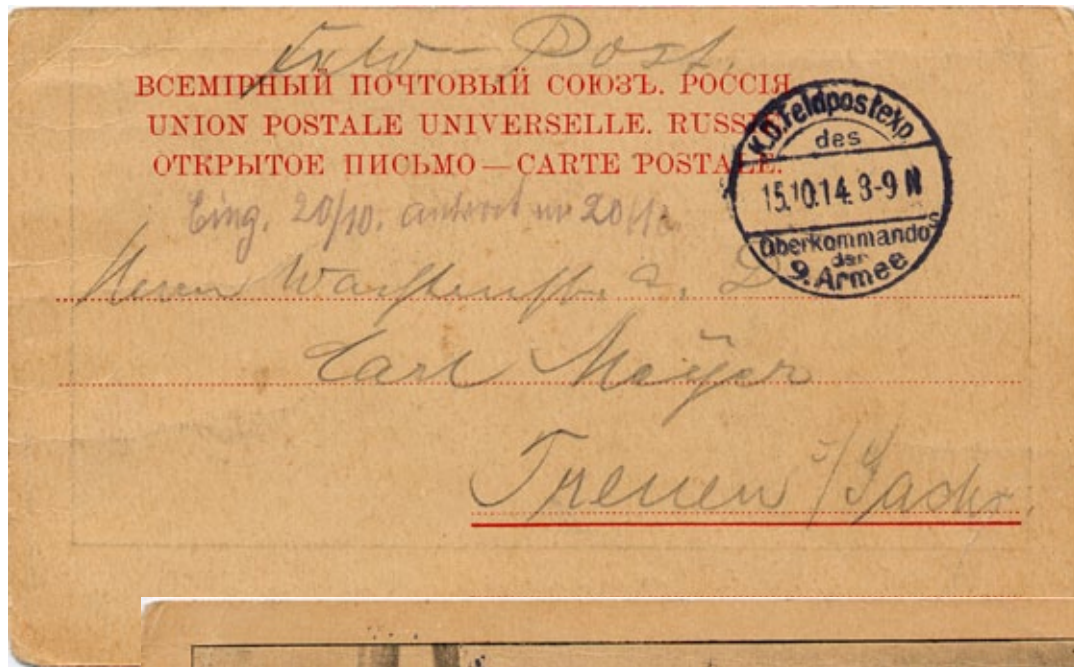 Feld-Post.
ВСЕМІРНЫЙ ПОЧТОВЫЙ СОЮЗЪ. РОССІЯ.
UNION POSTALE UNIVERSELLE. RUSSIE
ОТКРЫТОЕ ПИСЬМО — CARTE POSTALE.
K.D. Feldpostexp.
des
15.10.14. 8-9 N
Oberkommandos
der
9. Armee
Eing. 20/10.
Herrn a. D.
Carl Meyer
Treuen i/Sachs.